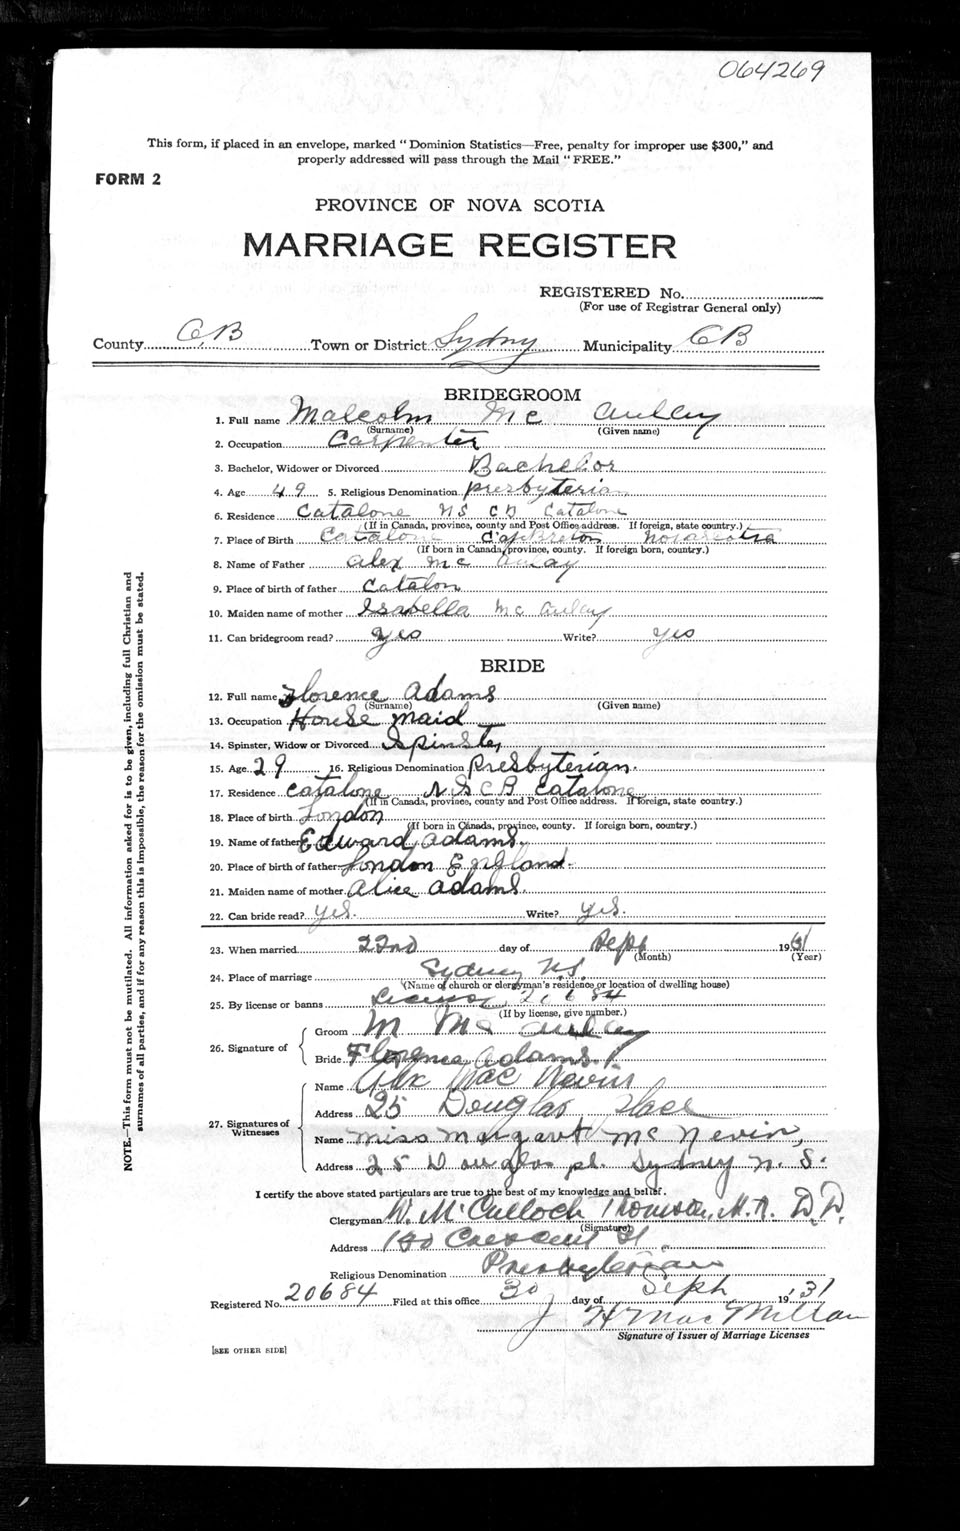 064269
This form, if placed in an envelope, marked "Dominion Statistics—Free, penalty for improper use $300," and
properly addressed will pass through the Mail "FREE."
FORM 2
PROVINCE OF NOVA SCOTIA
MARRIAGE REGISTER
REGISTERED No.
(For use of Registrar General only)
County C.B Town or District Sydney Municipality CB
BRIDEGROOM
1. Full name Malcolm Mc Aulley
(Surname) (Given name)
2. Occupation Carpenter
3. Bachelor, Widower or Divorced Bachelor
4. Age 49 5. Religious Denomination Presbyterian
6. Residence Catalone NS CB Catalone
(If in Canada, province, county and Post Office address. If foreign, state country.)
7. Place of Birth Catalone Cape Breton Nova Scotia
(If born in Canada, province, county. If foreign born, country.)
8. Name of Father Alex Mc Aulay
9. Place of birth of father Catalon
10. Maiden name of mother Isabella Mc Auley
11. Can bridegroom read? yes Write? yes
BRIDE
12. Full name Florence Adams
(Surname) (Given name)
13. Occupation House maid
14. Spinster, Widow or Divorced Spinster
15. Age 29 16. Religious Denomination Presbyterian.
17. Residence Catalone N.S C B Catalone
(If in Canada, province, county and Post Office address. If foreign, state country.)
18. Place of birth London
(If born in Canada, province, county. If foreign born, country.)
19. Name of father Edward Adams.
20. Place of birth of father London England.
21. Maiden name of mother Alice Adams.
22. Can bride read? yes. Write? yes.
23. When married 22nd day of Sept 1931
(Month) (Year)
24. Place of marriage Sydney N.S.
(Name of church or clergyman's residence or location of dwelling house)
25. By license or banns License 20684
(If by license, give number.)
26. Signature of
Groom M Mc Aulley
Bride Florence Adams.
27. Signatures of Witnesses
Name Alex MacNevin
Address 25 Douglas Place
Name Miss Margart McNevin,
Address 25 Douglas pl. Sydney N. S.
I certify the above stated particulars are true to the best of my knowledge and belief.
Clergyman W. McCulloch Thomson, M.A. D.D.
(Signature)
Address 180 Crescent St.
Religious Denomination Presbyterian
Registered No. 20684 Filed at this office 30 day of Sept 1931
J H MacMillan
Signature of Issuer of Marriage Licenses
[SEE OTHER SIDE]
NOTE.—This form must not be mutilated. All information asked for is to be given, including full Christian and
surnames of all parties, and if for any reason this is impossible, the reason for the omission must be stated.